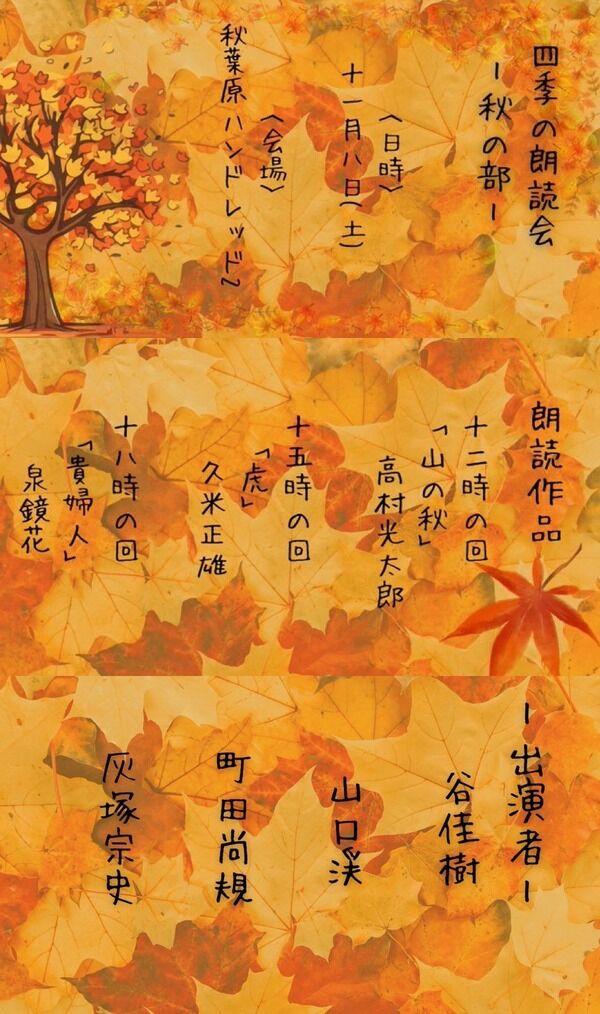 四季の朗読会
ー秋の部ー
〈日時〉
十一月八日(土)
〈会場〉
秋葉原ハンドレッド〜
朗読作品
十二時の回
「山の秋」
高村光太郎
十五時の回
「虎」
久米正雄
十八時の回
「貴婦人」
泉鏡花
ー出演者ー
谷佳樹
山口渓
町田尚規
灰塚宗史